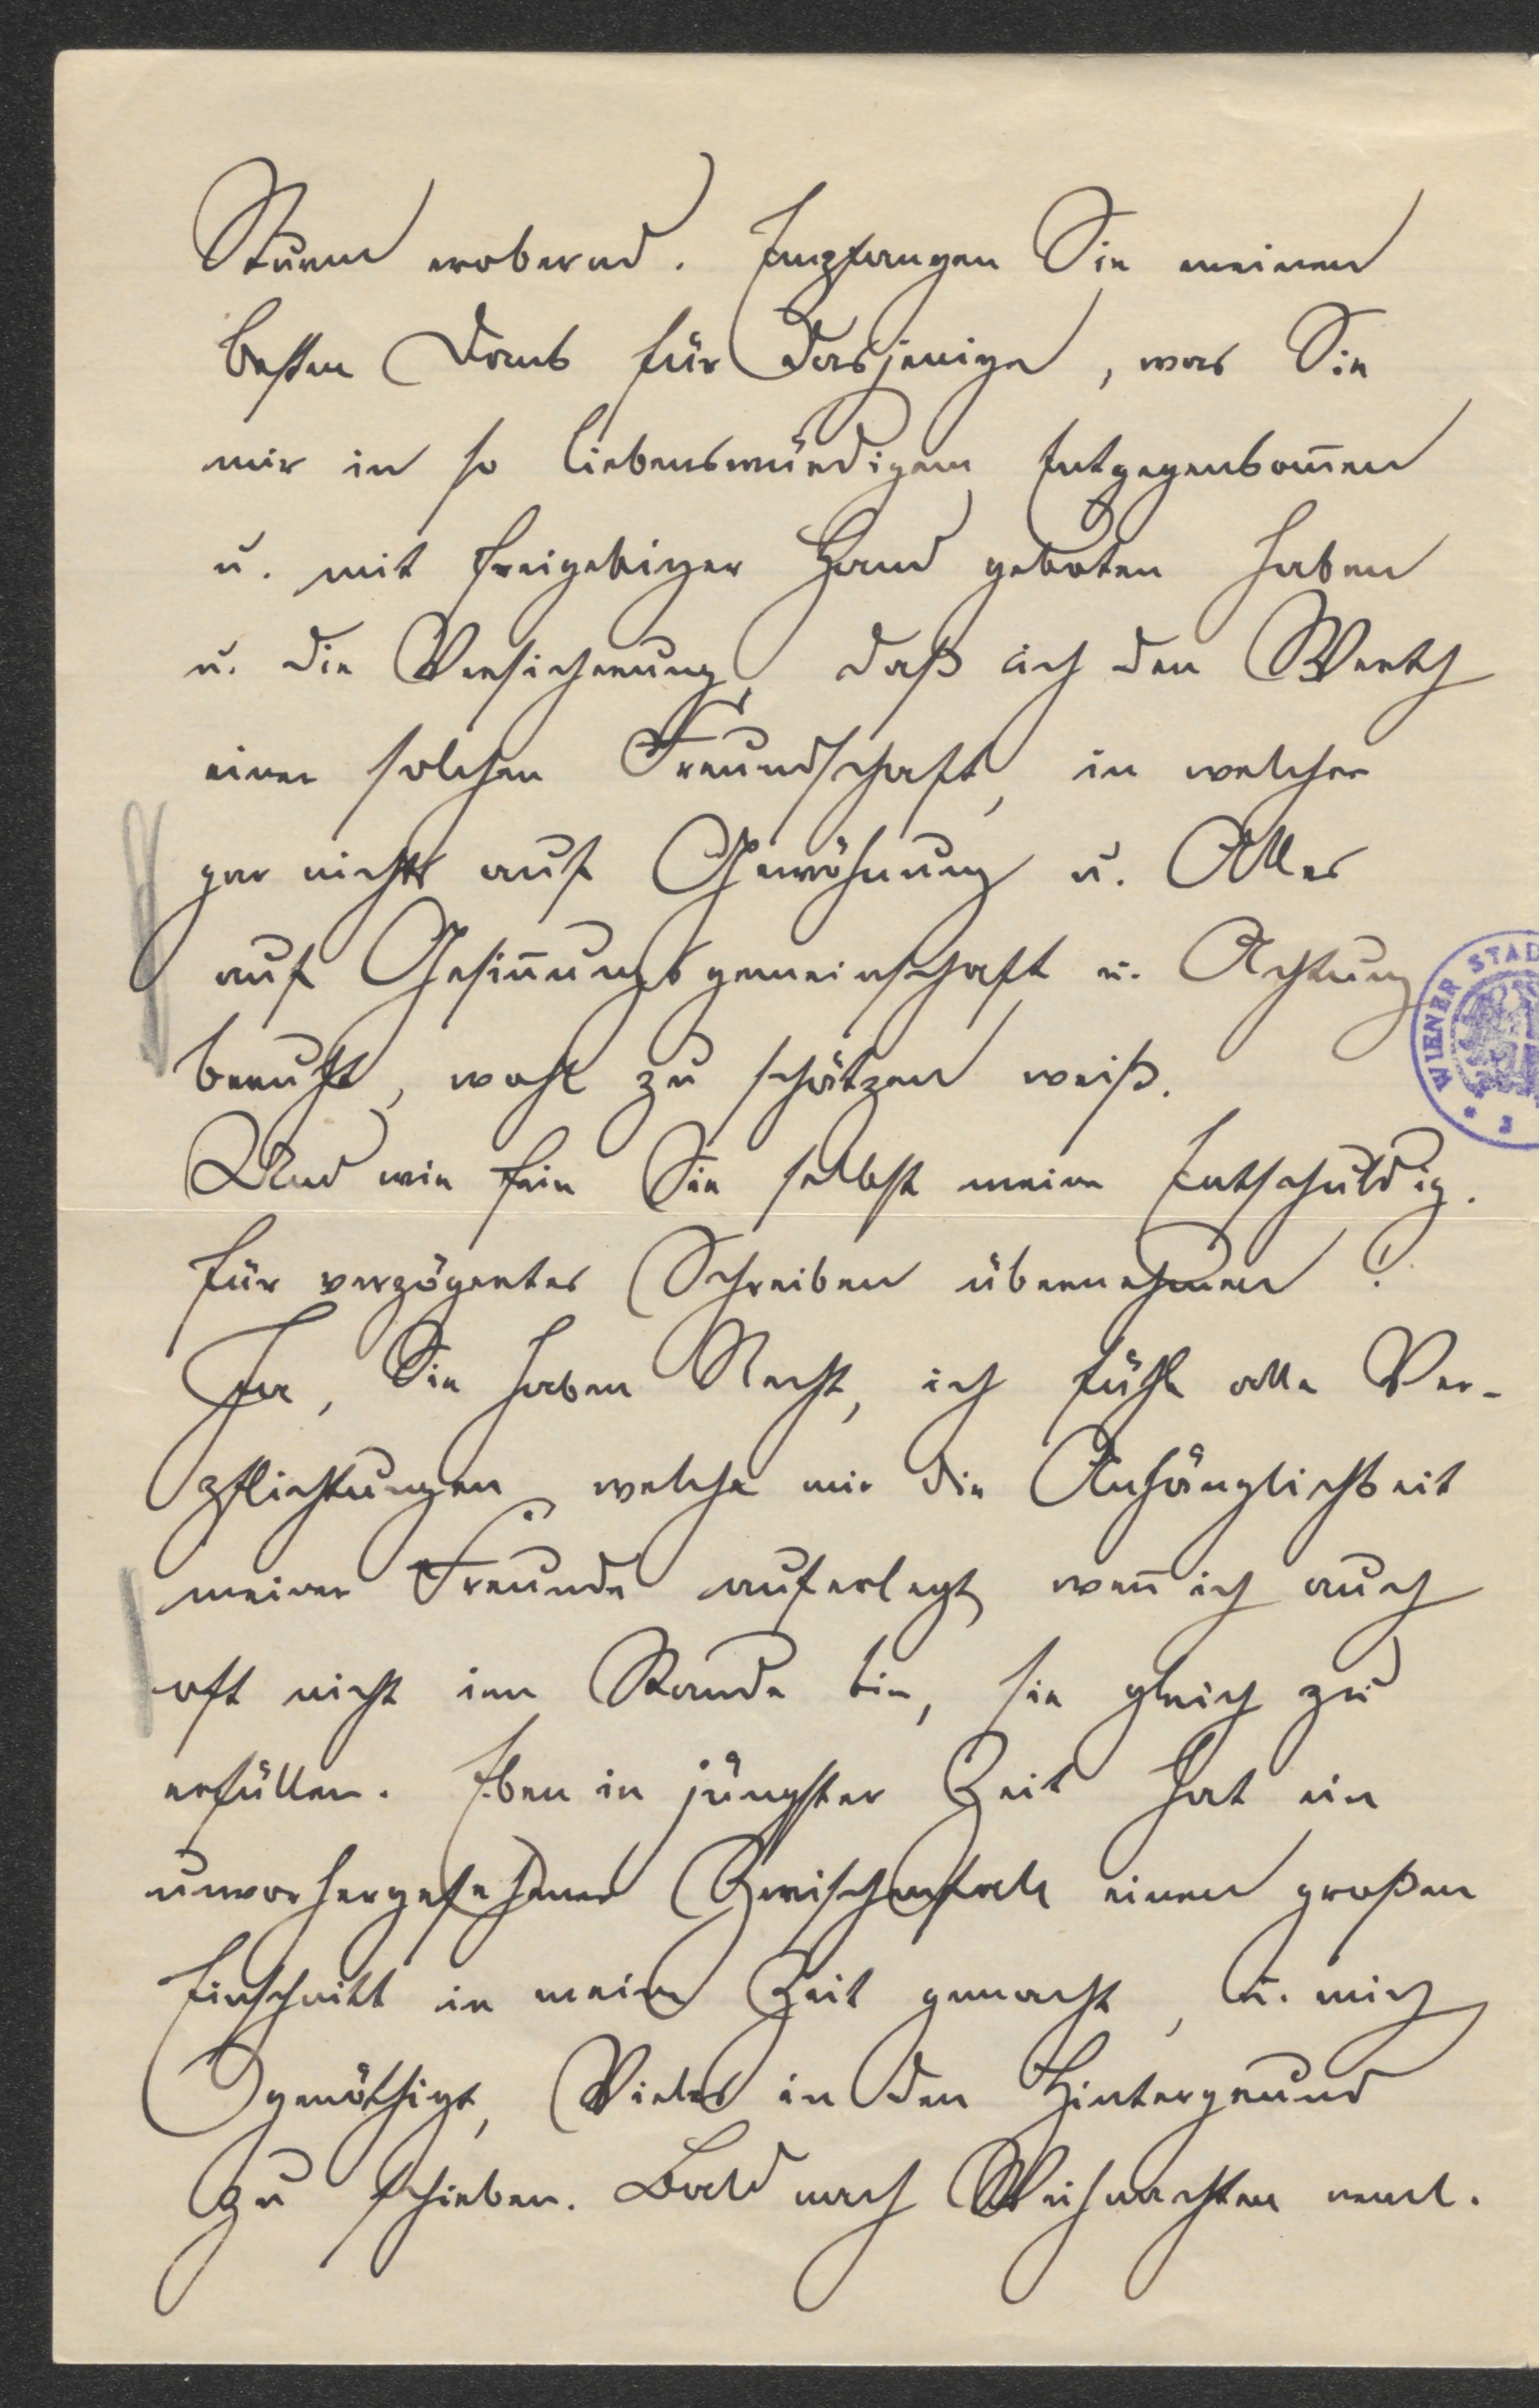 Sturm erobernd. Empfangen Sie meinen
besten Dank für dasjenige, was Sie
mir in so liebenswürdigem Entgegenkom̅en
u. mit freigebiger Hand geboten haben
u. die Versicherung, daß ich den Werth
einer solchen Freundschaft, in welcher
gar nichts auf Gewöhnung u. Alles
auf Gesin̅ungsgemeinschaft u. Achtung
beruht, wohl zu schätzen weiß.
Und wie fein Sie selbst meine Entschuldig.
für verzögertes Schreiben übernehmen!
Ja, Sie haben Recht, ich fühle alle Ver-
pflichtungen welche mir die Anhänglichkeit
meiner Freunde auferlegt, wen̅ ich auch
oft nicht im Stande bin, sie gleich zu
erfüllen. Eben in jüngster Zeit hat ein
unvorhergesehener Zwischenfall einen großen
Einschnitt in meine Zeit gemacht, u. mich
genöthigt, Vieles in den Hintergrund
zu schieben. Bald nach Weihnachten neml.
WIENER STAD